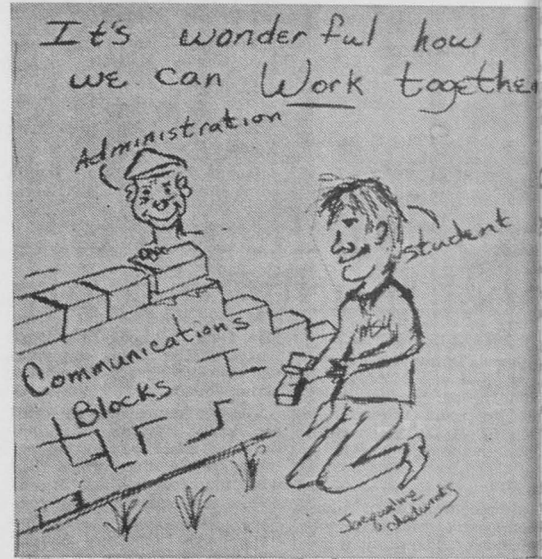 It's wonderful how
we can Work together
Administration
student
MSU
Communications
Blocks
Jacqueline